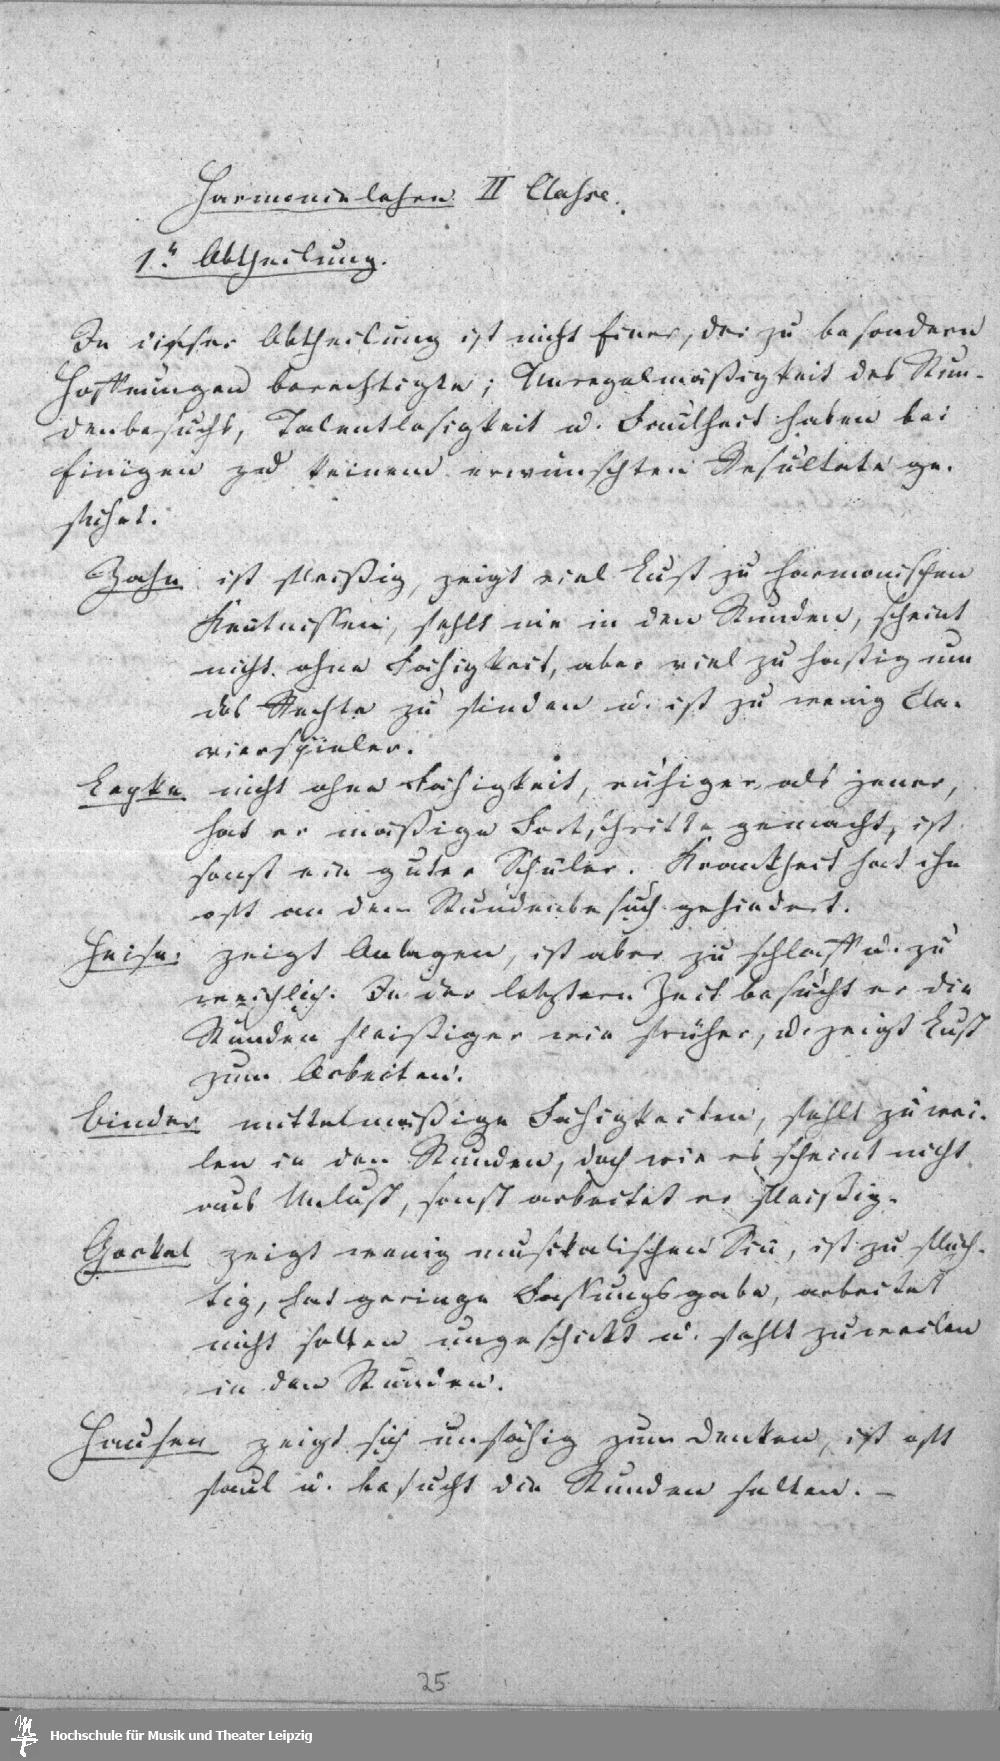 Harmonielehre II Classe.
1te Abtheilung.
In dieser Abtheilung ist nicht Einer, der zu besondern
Hoffnungen berechtigte; Unregelmäßigkeit des Stun-
denbesuchs, Talentlosigkeit u. Faulheit haben bei
Einigen zu keinem erwünschten Resultate ge-
führt.
Zahn ist fleißig, zeigt viel Lust zu harmonischen
Kenntnissen, fehlt nie in den Stunden, scheint
nicht ohne Fähigkeit, aber viel zu hastig um
das Rechte zu finden u. ist zu wenig Cla-
vierspieler.
Lepke nicht ohne Fähigkeit, ruhiger als jener,
hat er mäßige Fortschritte gemacht, ist
sonst ein guter Schüler. Krankheit hat ihn
oft an dem Stundenbesuch gehindert.
Heise. zeigt Anlagen, ist aber zu schlaff u. zu
weichlich. In der letztern Zeit besucht er die
Stunden fleißiger wie früher, u. zeigt Lust
zum Arbeiten.
Binder mittelmäßige Fähigkeiten, fehlt zuwei-
len in den Stunden, doch wie es scheint nicht
aus Unlust, sonst arbeitet er fleißig.
Gockel zeigt wenig musikalischen Sinn, ist zu flüch-
tig, hat geringe Fassungsgabe, arbeitet
nicht selten ungeschickt u. fehlt zuweilen
in den Stunden.
Hausen zeigt sich unfähig zum Denken, ist oft
faul u. besucht die Stunden selten. –
25
Hochschule für Musik und Theater Leipzig